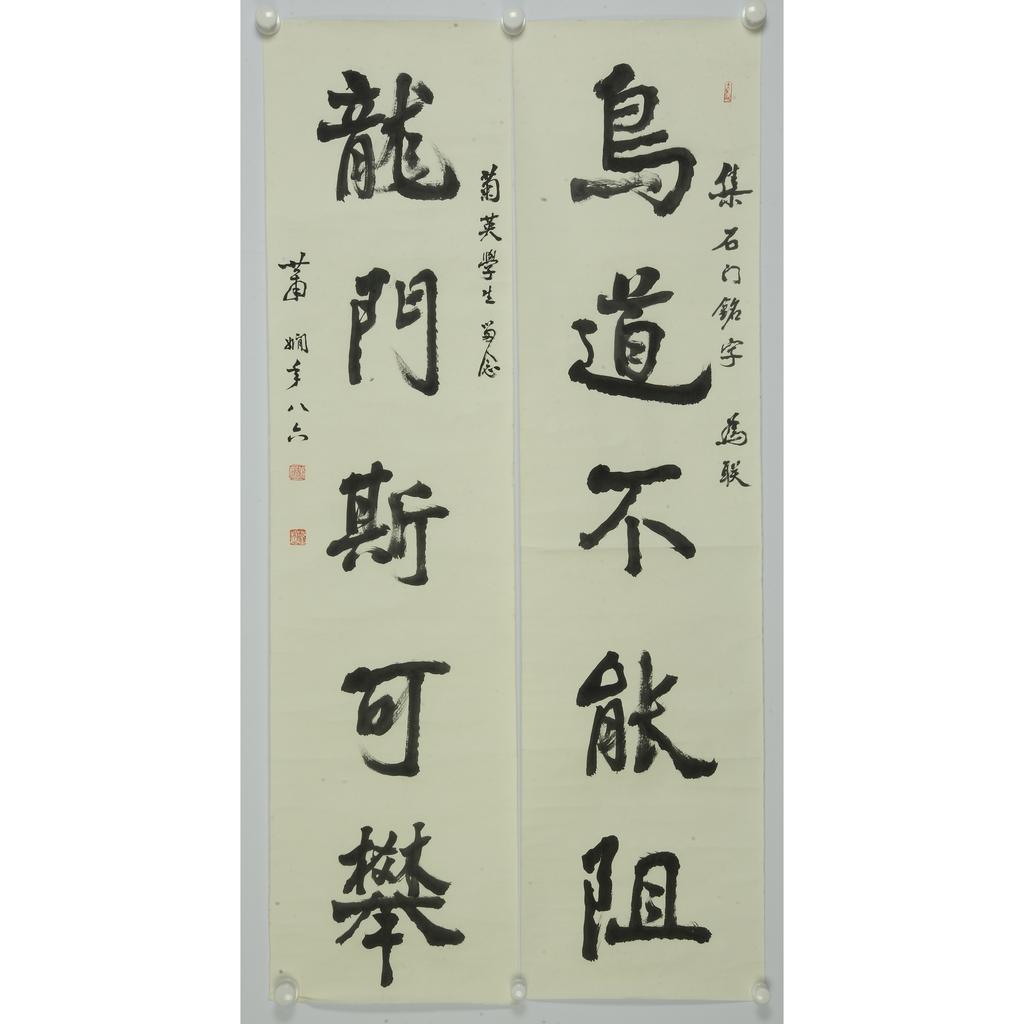 集石门銘字 為联
鳥道不能阻
菊英學生 留念
龍門斯可攀
蕭嫻年八六